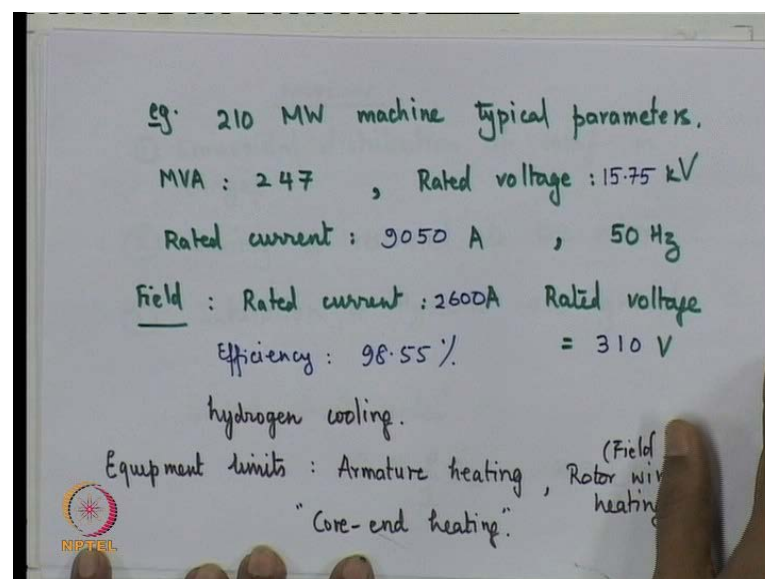 eg. 210 MW machine typical parameters.
MVA : 247 , Rated voltage : 15.75 kV
Rated current : 9050 A , 50 Hz
Field : Rated current : 2600A Rated voltage
Efficiency : 98.55 % = 310 V
hydrogen cooling.
(Field
Equipment limits : Armature heating , Rotor
heating
"Core-end heating".
NPTEL